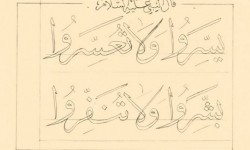 قال النبي عليه السلام
يَسِّرُوا وَلَا تُعَسِّرُوا
بَشِّرُوا وَلَا تُنَفِّرُوا